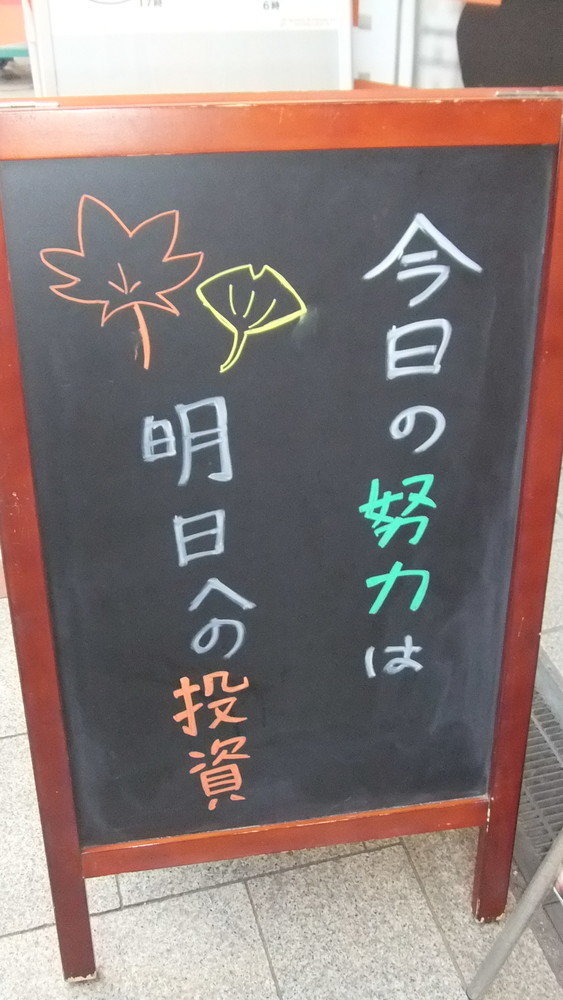 17時 6時
今日の努力は
明日への投資